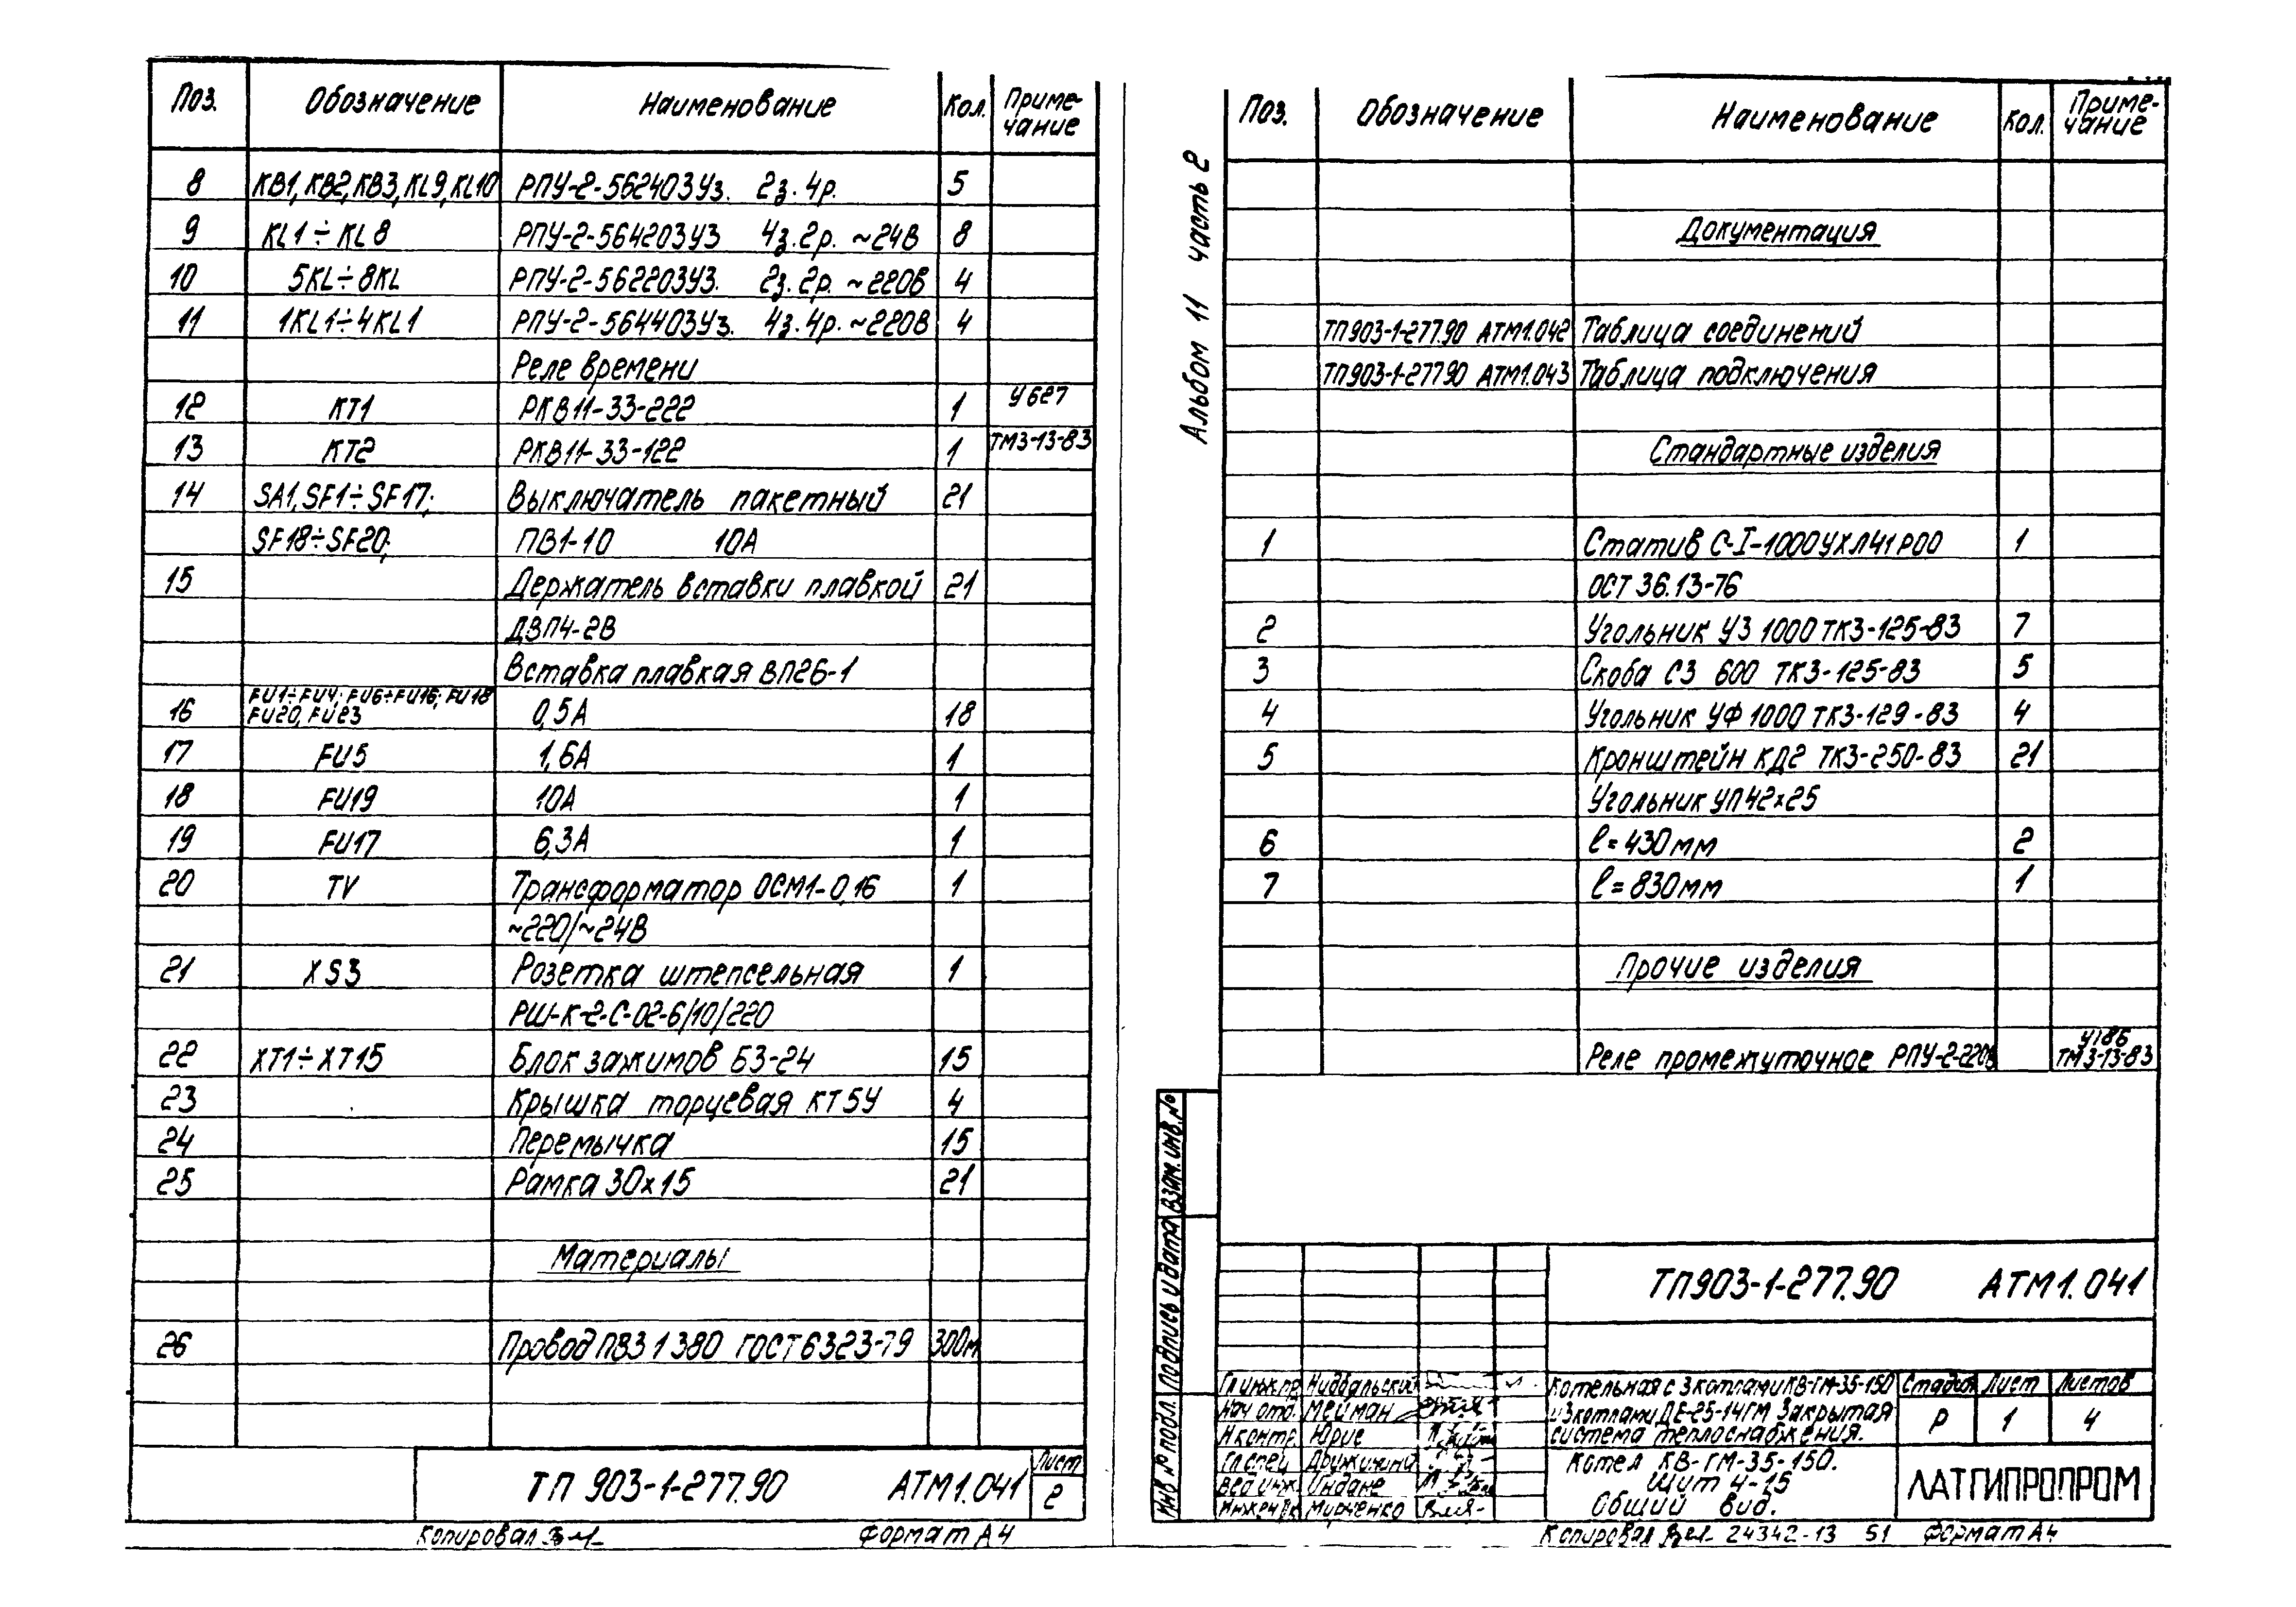 Поз. Обозначение Наименование Кол. Приме-
чание
8 КВ1, КВ2, КВ3, KL9, KL10 РПУ-2-562403У3. 2з. 4р. 5
9 KL1÷KL8 РПУ-2-564203У3 4з. 2р. ~24В 8
10 5KL÷8KL РПУ-2-562203У3. 2з. 2р. ~220В 4
11 1KL1÷4KL1 РПУ-2-564403У3. 4з. 4р. ~220В 4
Реле времени
12 КТ1 РКВ11-33-222 1 У627
13 КТ2 РКВ11-33-122 1 ТМ3-13-83
14 SA1, SF1÷SF17; Выключатель пакетный 21
SF18÷SF20; ПВ1-10 10А
15 Держатель вставки плавкой 21
ДВП4-2В
Вставка плавкая ВП2Б-1
FU1÷FU4; FU6÷FU16; FU18
16 FU20, FU23 0,5А 18
17 FU5 1,6А 1
18 FU19 10А 1
19 FU17 6,3А 1
20 TV Трансформатор ОСМ1-0,16 1
~220/~24В
21 XS3 Розетка штепсельная 1
РШ-К-2-С-02-6/10/220
22 XT1÷XT15 Блок зажимов БЗ-24 15
23 Крышка торцевая КТ5У 4
24 Перемычка 15
25 Рамка 30х15 21
Материалы
26 Провод ПВ3 1 380 ГОСТ 6323-79 300м
ТП 903-1-277.90 АТМ1.041 Лист
2
Копировал Формат А4
Альбом 11 часть 2
Поз. Обозначение Наименование Кол. Приме-
чание
Документация
ТП903-1-277.90 АТМ1.042 Таблица соединений
ТП903-1-277.90 АТМ1.043 Таблица подключения
Стандартные изделия
1 Статив С-I-1000УХЛ41Р00 1
ОСТ 36.13-76
2 Угольник У3 1000 ТК3-125-83 7
3 Скоба С3 600 ТК3-125-83 5
4 Угольник УФ 1000 ТК3-129-83 4
5 Кронштейн КД2 ТК3-250-83 21
Угольник УП 42х25
6 l=430мм 2
7 l=830мм 1
Прочие изделия
У186
Реле промежуточное РПУ-2-220В ТМ3-13-83
Взам. инв. №
Подпись и дата
Инв № подл.
ТП903-1-277.90 АТМ1.041
Гл инж.пр Нидбальский Котельная с 3 котлами КВ-ГМ-35-150 Стадия Лист Листов
Нач отд. Мейман и 3 котлами ДЕ-25-14ГМ Закрытая Р 1 4
Н контр. Юрие система теплоснабжения.
Гл спец Дружинина Котел КВ-ГМ-35-150. ЛАТГИПРОПРОМ
Вед инж. Индане Щит 4-15
Инжен Мурченко Общий вид.
Копировал 24342-13 51 Формат А4